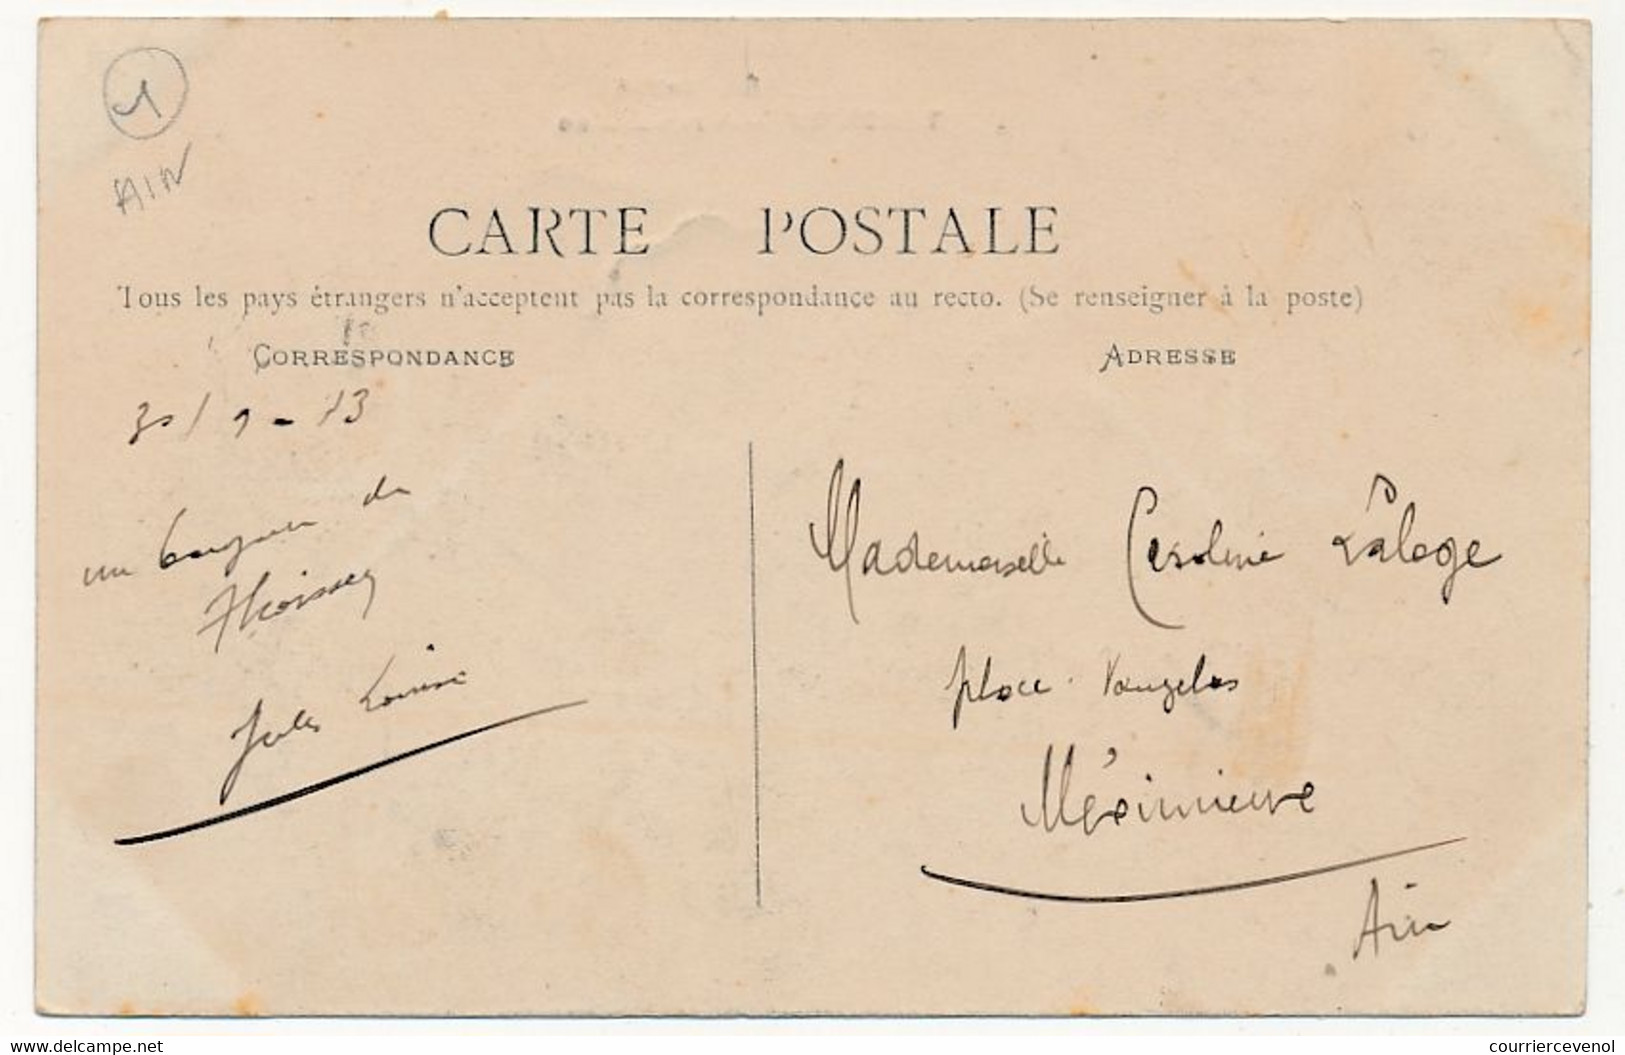 1
AIN
CARTE POSTALE
Tous les pays étrangers n'acceptent pas la correspondance au recto. (Se renseigner à la poste)
CORRESPONDANCE
ADRESSE
30/1-13
un bouquin de
Thoissey
Jules Louise
Mademoiselle Caroline Laloge
place Vaugelas
Méximieuxe
Ain
www.delcampe.net
courriercevenol